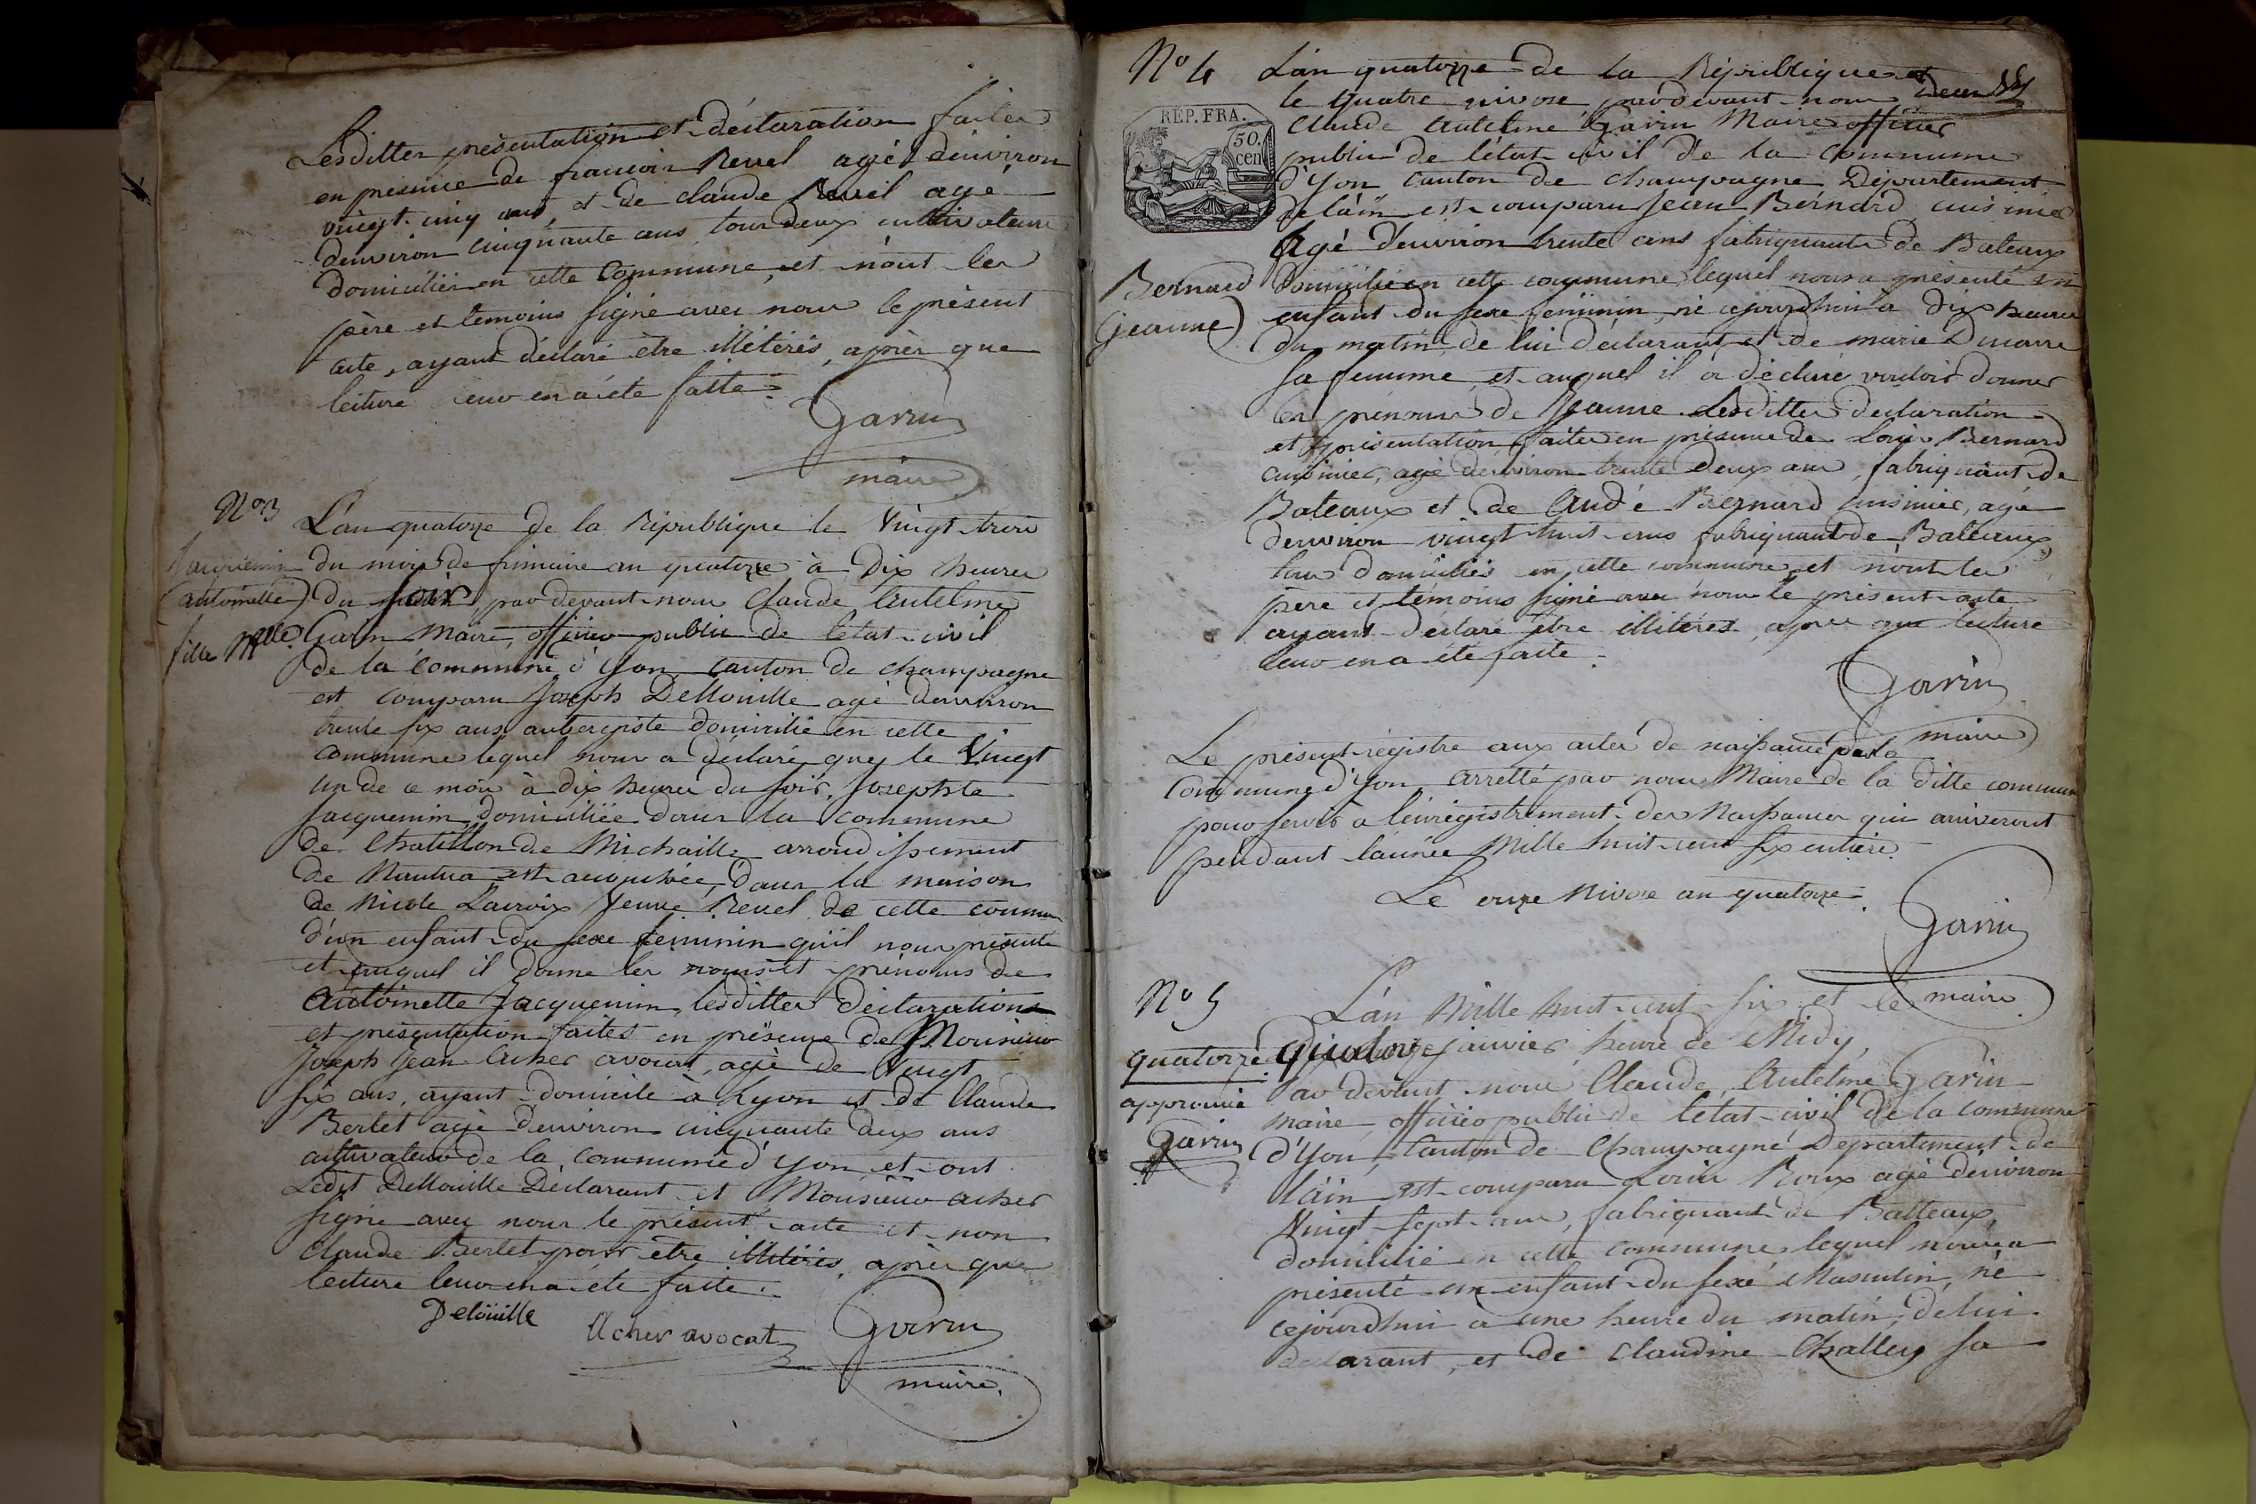 Lesdittes présentation et déclaration faites
en présence de francois Revel agé d'environ
vingt cinq ans, et de claude Revel agé
d'environ cinquante ans tous deux cultivateurs
domiciliés en cette Commune, et n'ont les
père et temoins signé avec nous le présent
acte, ayant déclaré être illitérés, après que
lecture leur en a été faitte.
Garin
maire
No 3
L'an quatorze de la République le Vingt trois
Jacquenin du mois de frimaire an quatorze à Dix heures
(antoinette) du soir, par devant nous Claude Antelme
fille Nlle. Garin Maire, officier public de l'etat civil
de la commune d'Yon canton de champagne
est comparu Joseph Dellouille agé d'environ
trente six ans aubergiste domicilié en cette
commune lequel nous a déclaré que le Vingt
un de ce mois à dix heures du soir, Josephte
Jacquenin, domiciliée dans la commune
de Chatillon de Michaille arrondissement
de Nantua est accouchée, dans la maison
de Nicole Lacroix Veuve Revel de cette commune
d'un enfant du sexe feminin qu'il nous présente
et auquel il donne les noms et prénoms de
Antoinette Jacquenin, lesdittes déclarations
et présentation faites en présence de Monsieur
Joseph Jean Acher avocat, agé de Vingt
six ans, ayant domicile à Lyon et de Claude
Berlet agé d'environ cinquante deux ans
cultivateur de la commune d'Yon et ont
Ledit Dellouille Déclarant et Monsieur acher
signé avec nous le présent acte et non
Claude Berlet pour être illitérés, après que
lecture leur en a été faitte.
Deloüille
Acher avocat
Garin
maire.
No 4
L'an quatorze de la République et
le quatre nivose par devant nous
REP. FRA.
50. cen
Claude Antelme Garin Maire officier
public de l'état civil de la commune
d'Yon, canton de champagne Département
de l'ain est comparu Jean Bernard cuisinier
Agé d'environ trente ans fabriquant de Bateaux
Bernard
(jeanne)
Domicilié en cette commune lequel nous a présenté un
enfant du sexe féminin, né cejourdhui à dix heures
du matin de lui déclarant et de marie
sa femme, et auquel il a déclaré vouloir donner
les prénoms de Jeanne. Lesdittes déclaration
et présentation faites en présence de Louis Bernard
cuisinier, agé d'environ trente deux ans, fabriquant de
Bateaux et de Claude Bernard cuisinier, agé
d'environ vingt huit ans fabriquant de Bateaux
tous domiciliés en cette commune, et n'ont les
père et temoins signé avec nous le présent acte
ayant déclaré être illitérés, après que lecture
leur en a été faite.
Garin
maire
Le présent régistre aux actes de naissance de la
Commune d'Yon arretté par nous Maire de la ditte commune
pour servir à l'enrégistrement des Naissances qui arriveront
pendant l'année Mille huit cent six entière.
Le onze Nivose an quatorze.
Garin
maire
No 5
L'an Mille huit cent six et le
quatorze
approuvé
Garin
Quatorze janvier heure de Midy,
Par devant nous Claude Antelme Garin
maire, officier public de l'état civil de la commune
d'Yon, Canton de Champagne Département de
l'ain est comparu Louis Roux agé d'environ
Vingt-sept ans, fabriquant de Batteaux,
domicilié en cette commune lequel nous a
présenté un enfant du sexe Masculin, né
cejourdhui à une heure du matin, de lui
déclarant, et de Claudine Challey sa